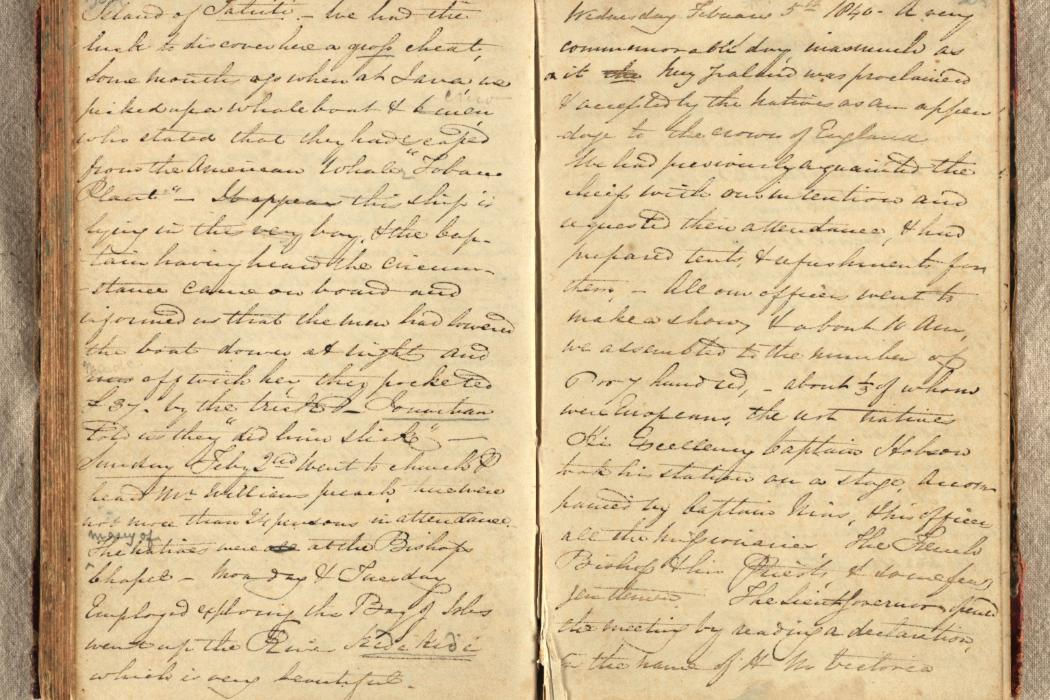 Island of Tahiti - We had the
luck to discover here a gross cheat,
Some months ago when at Java we
picked up a whale boat & 6 men
who stated that they had escaped
from the American Whaler "Tobacco
Plant" - It appears this ship is
lying in this very bay, & the Cap-
tain having heard the circum-
-stance came on board and
informed us that the men had lowered
the boat down at night and
off with her they pocketed
£37. by the trick - Jonathan
told us they "did him slick" -
Sunday Feby 2nd Went to church &
heard Mr Williams preach there were
not more than 24 persons in attendance.
many of
The natives were at the Bishops
Chapel - Monday & Tuesday
Employed exploring the Bay of Isles
went up the River Kidi Kidi
which is very beautiful. -
Wednesday February 5th 1840 - A very
commemorable day inasmuch as
it the New Zealand was proclaimed
& accepted by the natives as an appen
dage to the crown of England
We had previously aquainted the
cheifs with our intention and
requested their attendance, & had
prepared tents, & refreshments for
them, - All our officers went to
make a show, & about 10 Am,
we assembled to the number of
6 or 7 hundred, - about 1/3 of whom
were Europeans, the rest natives
His Excellency Captain Hobson
took his station on a stage, Accom
panied by Captain Nias, & his officers
all the missionaries, The French
Bishop & his Priests, & some few
gentlemen. The Lieut Governor opened
the meeting by reading a declaration,
in the name of H M Victoria